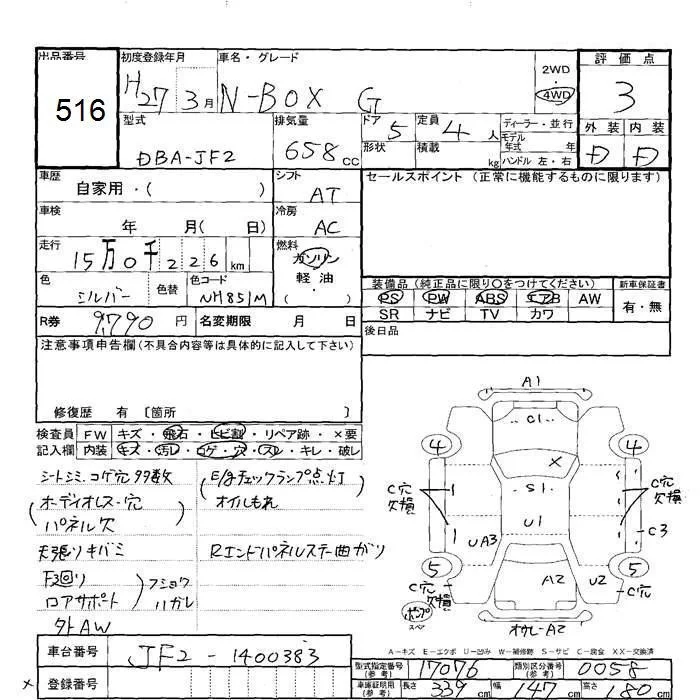 出品番号 初度登録年月 車名・グレード 評価点
516
H27 3月 N-BOX G 2WD 4WD 3
型式 排気量 ドア 定員 ディーラー・並行 外装 内装
DBA-JF2 658cc 5 4人 モデル年式 年 D D
形状 積載 kg ハンドル 左・右
車歴 シフト セールスポイント (正常に機能するものに限ります)
自家用・( ) AT
車検 冷房
年 月( 日) AC
走行 燃料
15万0千226km ガソリン
軽油
・( )
色 色替 色コード
シルバー NH851M
装備品 (純正品に限り〇をつけてください) 新車保証書
PS PW ABS エアB AW 有・無
SR ナビ TV カワ
R券 9,790円 名変期限 月 日
後日品
注意事項申告欄(不具合内容等は具体的に記入して下さい)
修復歴 有 〔箇所 〕
検査員 FW キズ・飛石・ヒビ割・リペア跡・×要
記入欄 内装 キズ・汚レ・コゲ・穴・スレ・キレ・破レ
シートシミ、コゲ穴多数
(オーディオレス・穴
パネル欠)
天張りキバミ
下廻り
ロアサポート
)フショク
ハガレ
外AW
(E/gチェックランプ点灯
オイルもれ)
Rエンドパネルステー曲がり
A1
C1
4 4
×
C穴 欠損 S1 C穴 欠損
U1
UA3 C3
5 5
A2 U2
C穴 欠損 C穴
ポンプ
スペア
オクレ-A2
A-キズ E-エクボ U-凹み W-補修跡 S-サビ C-腐食 XX-交換済
車台番号 JF2-1400383
型式指定番号(参考) 17076 類別区分番号(参考) 0058
× 登録番号
車庫証明用(参考) 長さ 339cm 幅 147cm 高さ 180cm